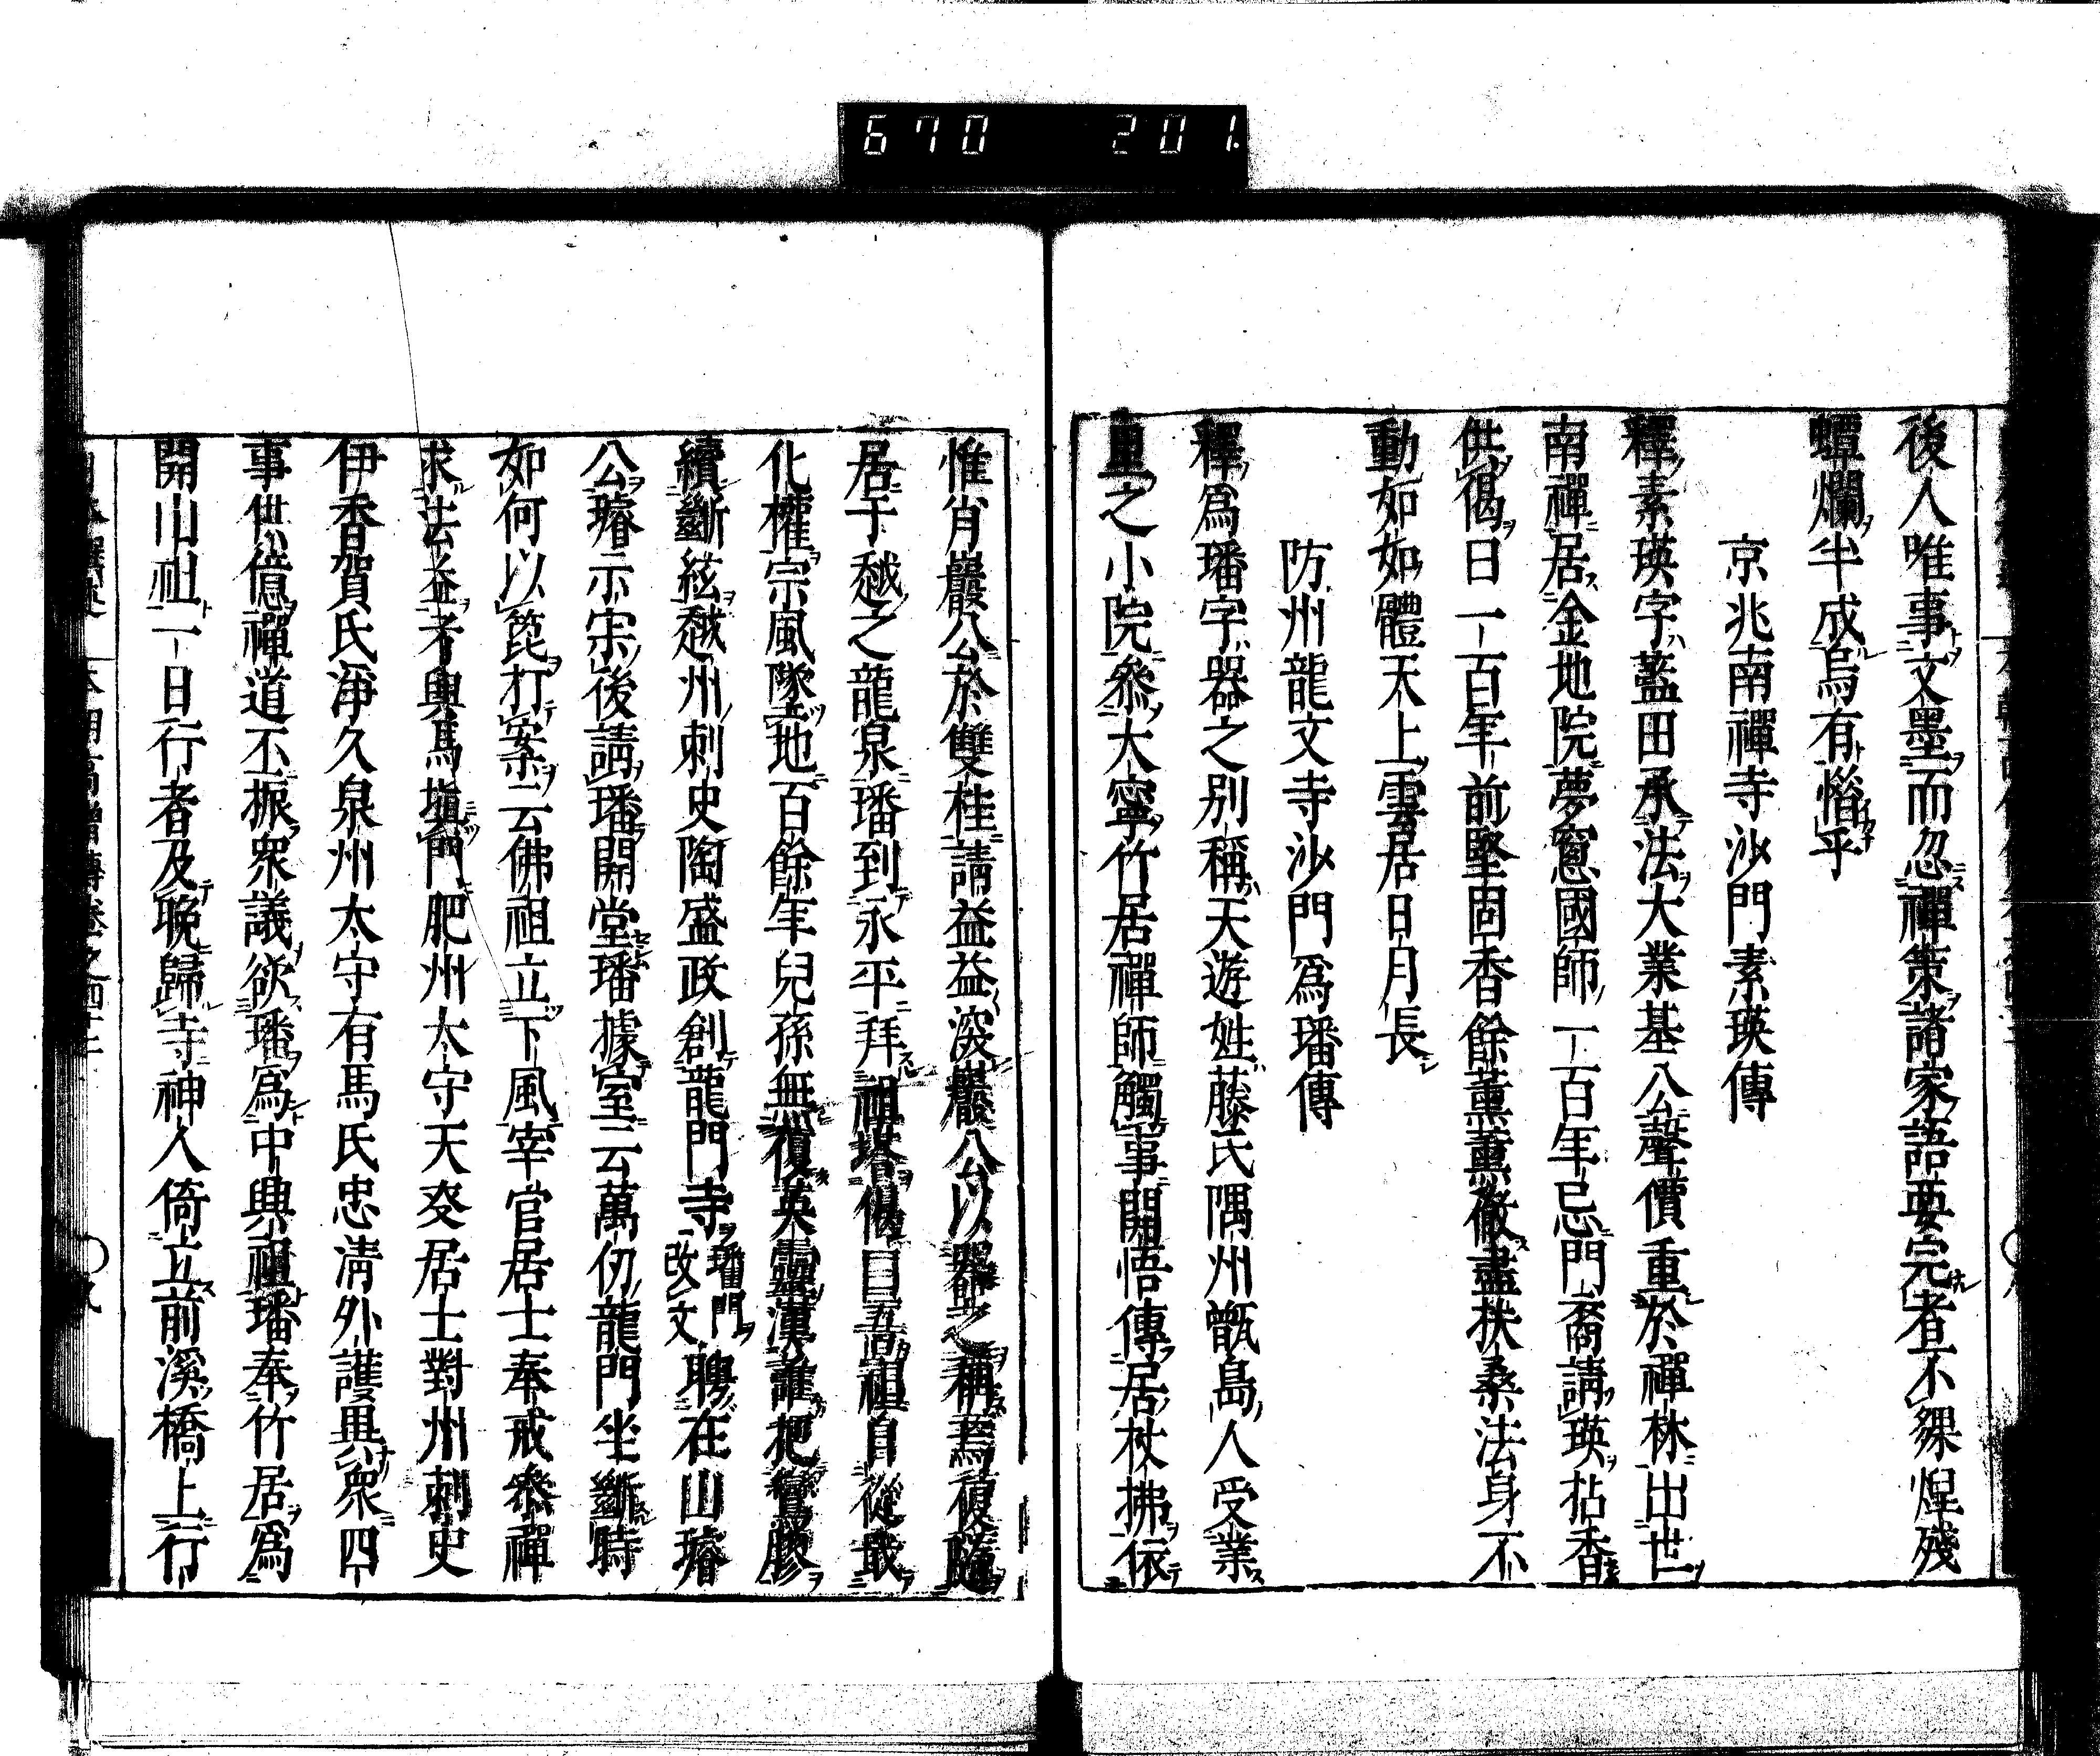 670 201
後人唯事文墨而忽禪策諸家語要完者不鮮煋殘
蟫爛半成烏有惜乎
京兆南禪寺沙門素瑛傳
釋素瑛字藍田承法大業基公聲價重於禪林出世
南禪居金地院夢窓國師一百年忌門裔請瑛拈香
供偈曰一百年前堅固香餘薰薰徹盡扶桑法身不
動如如體天上雲居日月長
防州龍文寺沙門爲璠傳
釋爲璠字器之別稱天遊姓藤氏隅州甑島人受業
重之小院參大寧竹居禪師觸事開悟傳居杖拂依
惟肖巖公於雙桂請益益深巖公以器之稱焉復隨
居于越之龍泉璠到永平拜祖塔偈曰吾祖自從戢
化權宗風墜地百餘年兒孫無復英靈漢誰把鸞膠
續斷絃越州刺史陶盛政創龍門寺璠門改文聘在山璿
公璿示宋後請璠開堂璠據室云萬仞龍門坐斷時
如何以篦打案云佛祖立下風宰官居士奉戒參禪
求法益者輿馬塡門肥州太守天叟居士對州刺史
伊香賀氏淨久泉州太守有馬氏忠淸外護興衆四
事供億禪道不振衆議欲璠爲中興祖璠奉竹居爲
開山祖一日行者及晩歸寺神人倚立前溪橋上行